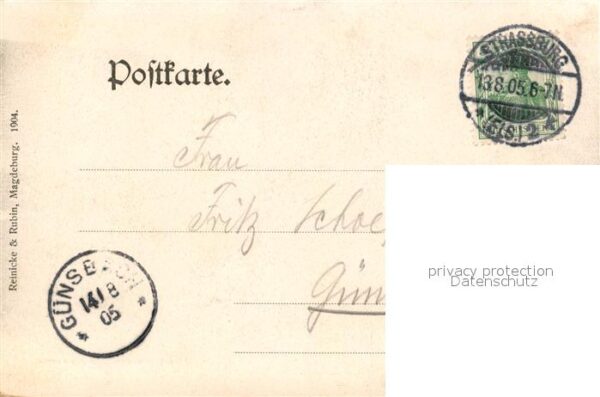 Postkarte.
STRASSBURG
13.8.05.6-7N.
*(ELS.)2*
Frau
Fritz Schoe
Gün
Reinicke & Rubin, Magdeburg. 1904.
* GÜNSBACH *
14/8
05
privacy protection
Datenschutz